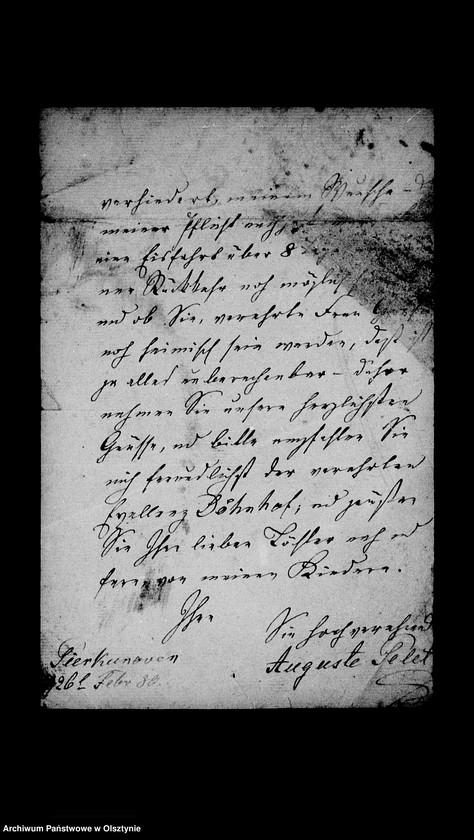 verhindert, meinem Wunsche
meiner Pflicht
eine Eisfahrt über 8
ner Rückkehr noch mögli
und ob Sie, verehrte Frau
noch heimisch sein werden, daß ist
ja alles unberechenbar – daher
nehmen Sie unsere herzlichsten
Grüsse, und bitte empfehlen Sie
mich freundlichst der verehrten
Excellenz; und grüßen
Sie Ihre lieben Töchter
von meinen Kindern.
Ihre
Sie hochverehrende
Auguste
Pierkunowen
26t Febr 80.
Archiwum Państwowe w Olsztynie